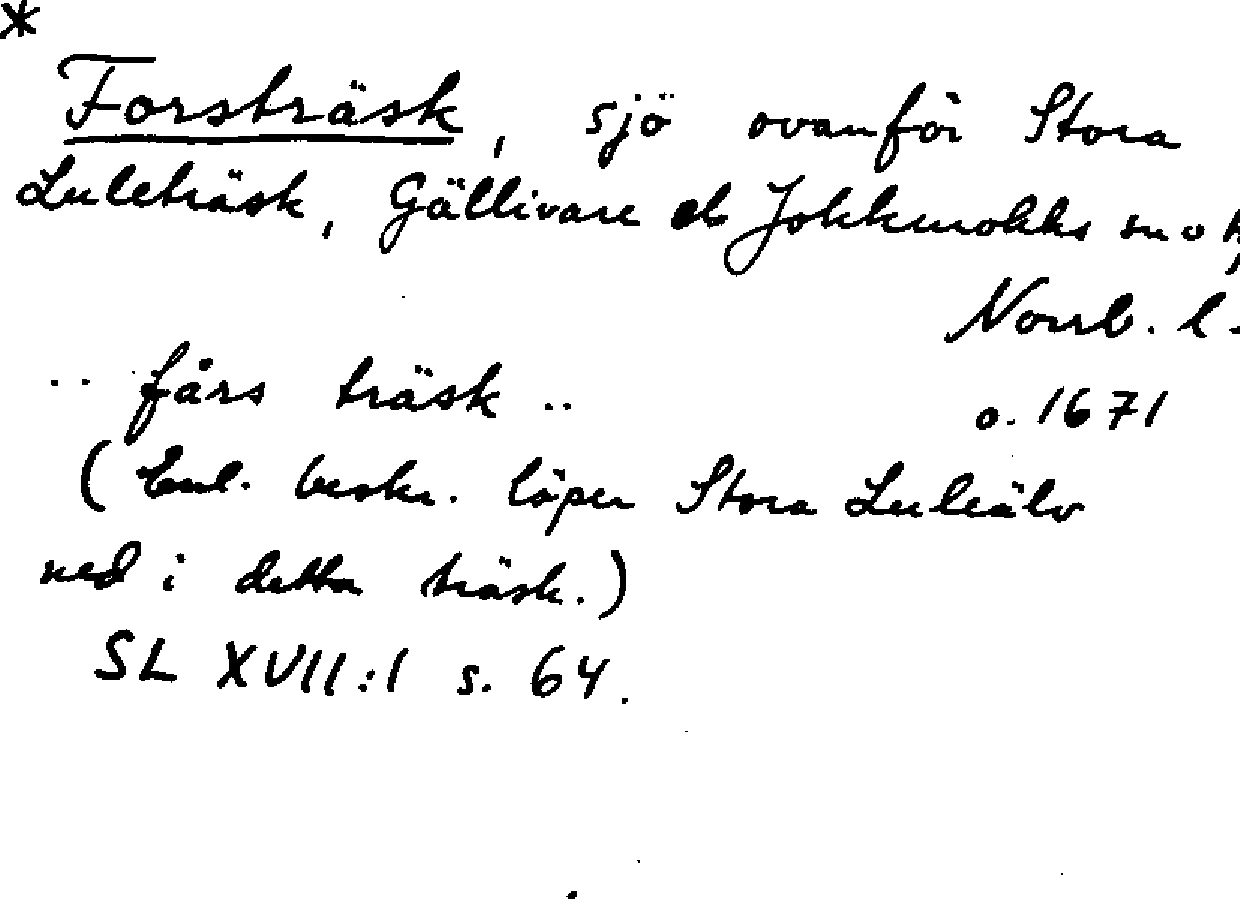 *
Forsträsk, sjö ovanför Stora
Luleträsk, Gällivare el Jokkmokks sn o
Norrb. l.
.. fårs träsk ..
o. 1671
(Enl. beskr. löper Stora Luleälv
ned i detta träsk.)
SL XVII:1 s. 64.